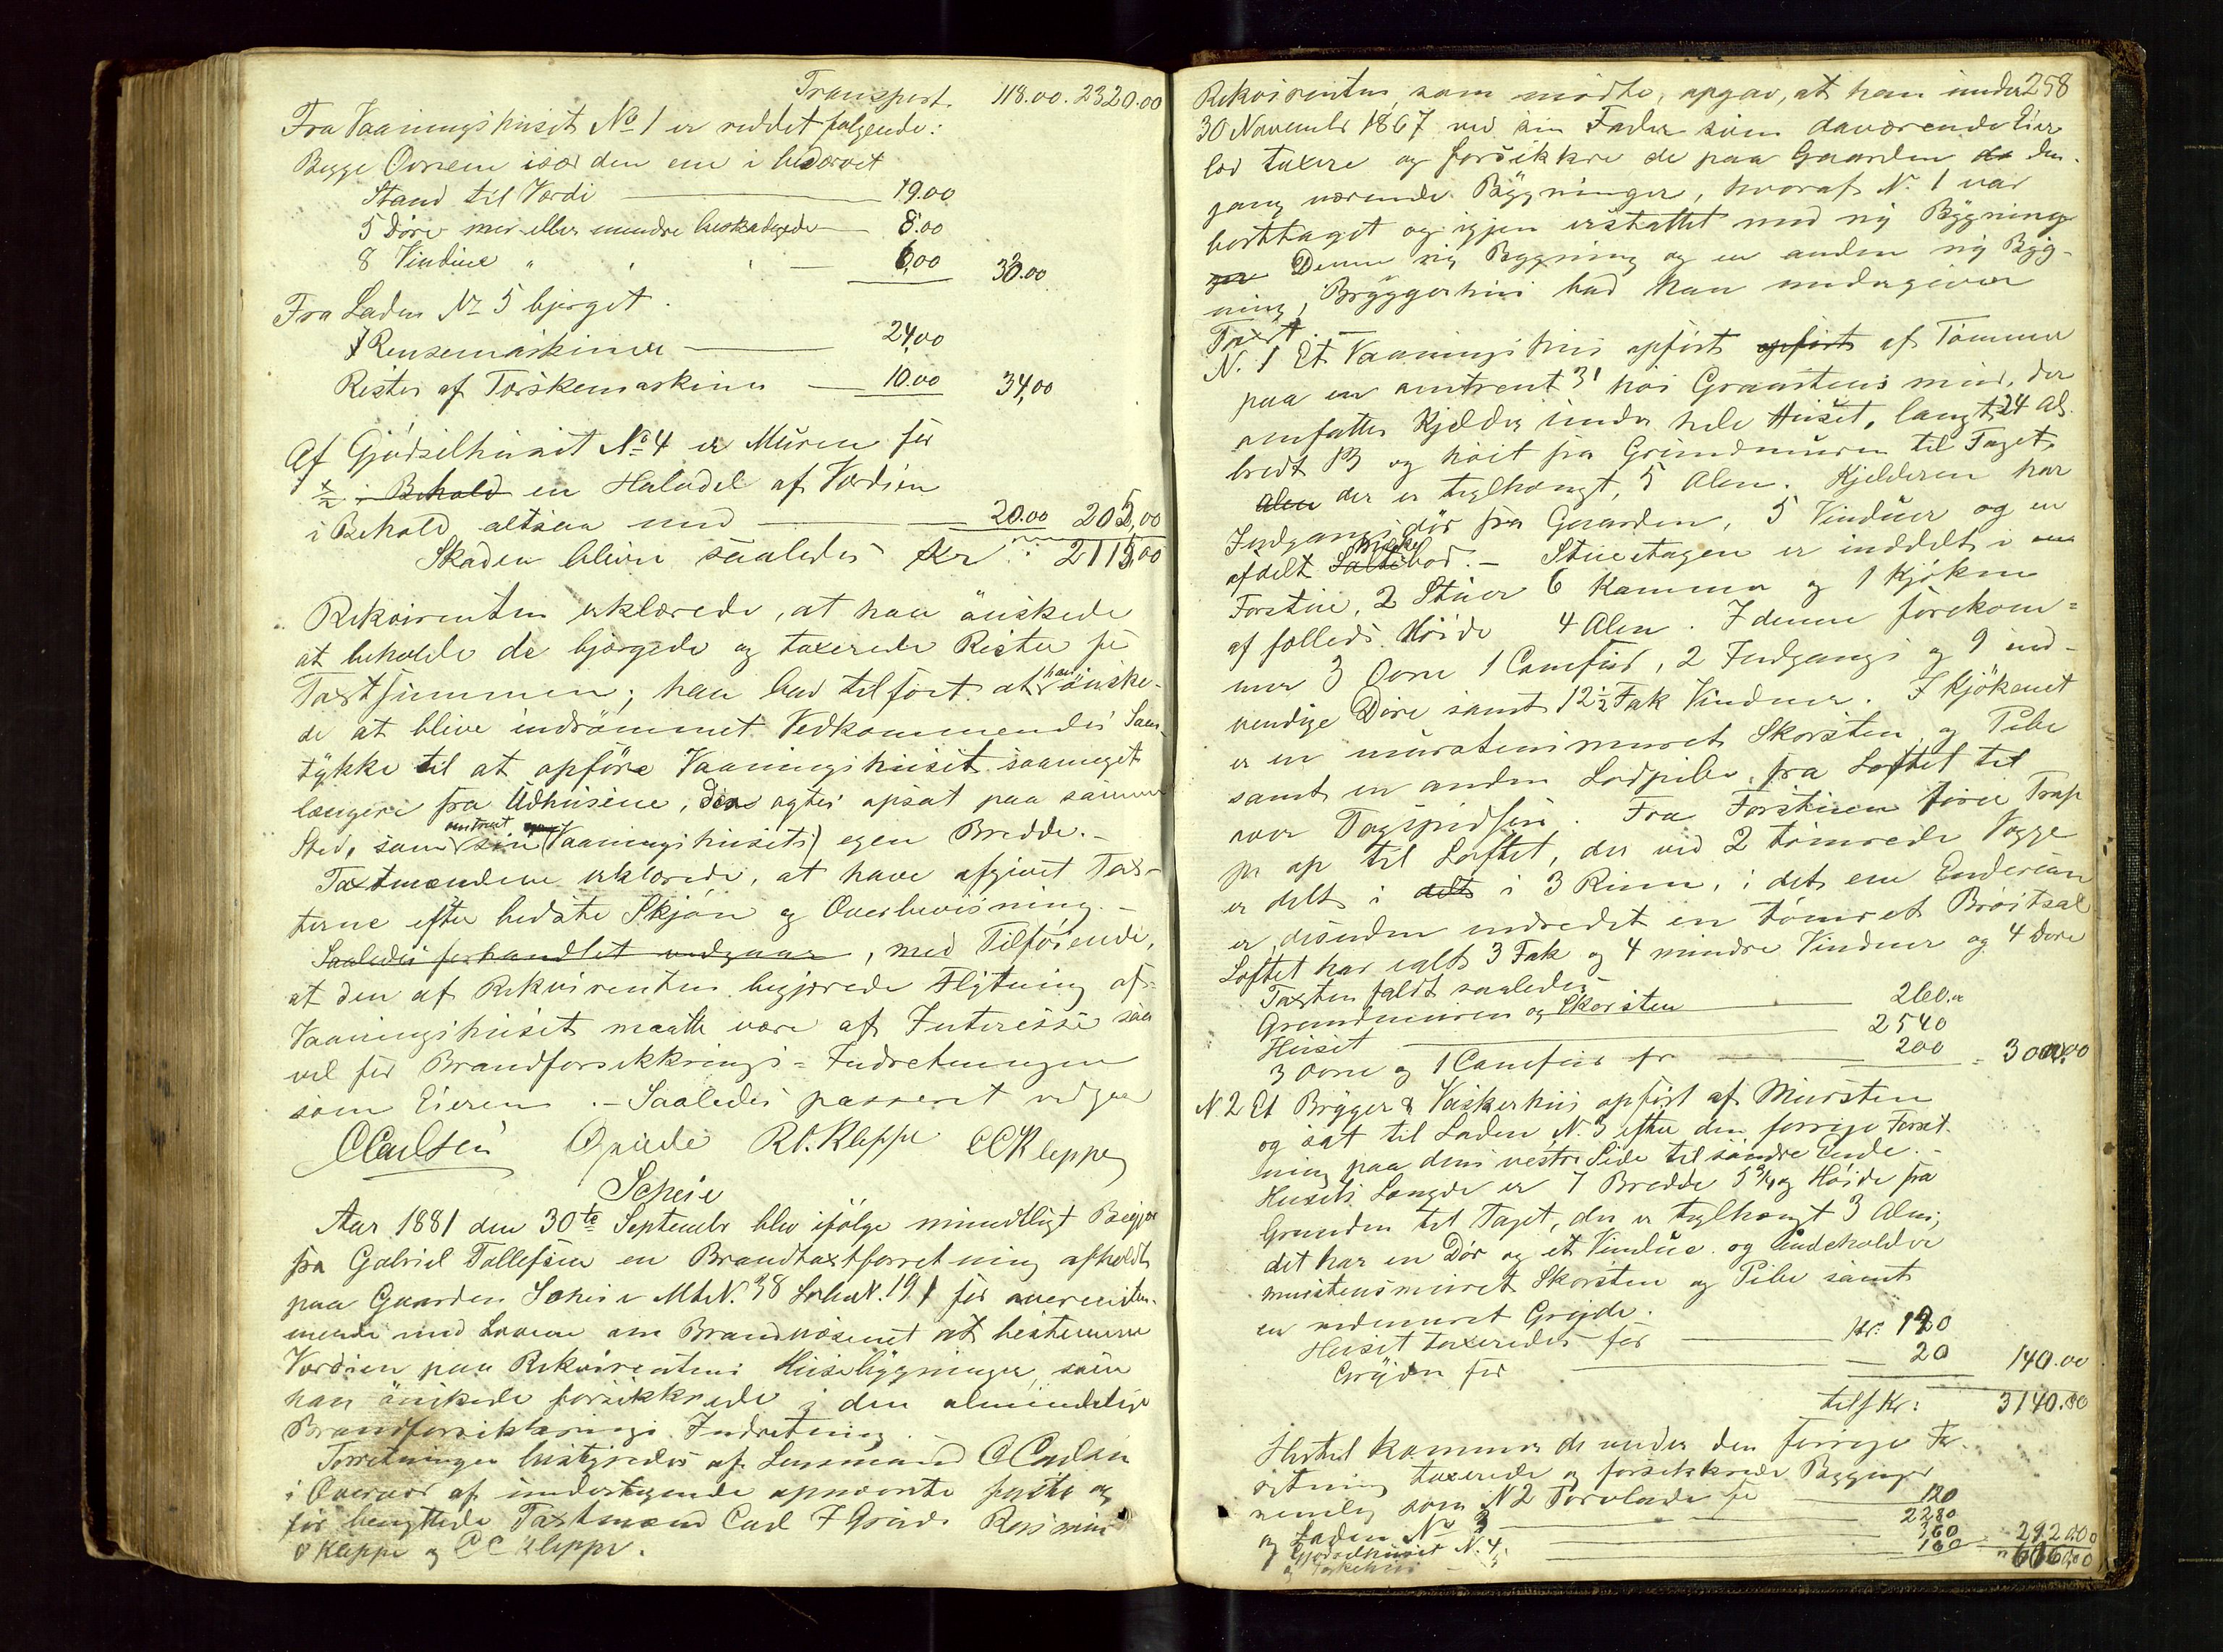 Transport 118.00. 2320.00
Fra Vaaningshuset No 1 er reddet følgende:
Begge Ovnene især den ene i bedærvet
Stand til Værdi 19.00
5 Døre mer eller mindre beskadigede 8.00
8 Vinduer " 6,00 33.00
Fra Laden No 5 bjerget.
1 Rensemaskine 24,00
Rister af Torskemaskine 10.00 34,00
Af Gjødselhuset No 4 er Muren for
1/2 i Behold en Halvdel af Værdien
i Behold altsaa med 20.00 205,00
Skaden bliver saaledes Kr: 2115,00
Rekvirenten erklærede, at han ønskede
at beholde de bjærgede og taxerede Rester for
Taxtsummen; han bad tilført at han ønske-
de at blive indrømmet Vedkommendes Sam-
tykke til at opføre Vaaningshuset saameget
længere fra Udhusene, der agtes opsat paa samme
Sted, som omtrent sin (Vaaningshusets) egen Bredde.-
Taxtmændene erklærede, at have afgivet Tax-
terne efter bedste Skjøn og Overbevisning.-
Saaledes forhandlet vedgaar, med Tilføiende,
at den af Rekvirenten begjærede Flytning af
Vaaningshuset maatte være af Interesse saa
vel for Brandforsikkrings-Indretningen
som Eieren.- Saaledes passeret vedgaar
CCarlsen Grude R.O.Kleppe CCKleppe
Scheie
Aar 1881 den 30te Septembr blev ifølge mundtligt Begjær
fra Gabriel Tollefsen en Brandtaxtforretning afholdt
paa Gaarden Scheie Mt.N. 38 Løbe N. 191 for overensstem-
mende med Lovene om Brandvæsenet at bestemme
Værdien paa Rekvirentens Husebygninger, som
han ønskede forsikkrede i den almindelige
Brandforsikkrings Indretning.-
Forretningen bestyredes af Lensmand CCarlsen
i Overvær af undertegnede opnævnte faste og
før benyttede Taxtmænd Carl F Grude Rasmus
O Kleppe og C C Kleppe.
258
Rekvirenten, som mødte, opgav, at han under
30 Novembr 1867 ved sin Fader som daværende Eier
lod taxere og forsikkre de paa Gaarden da den-
gang værende Bygninger, hvoraf N. 1 var
borttaget og igjen erstattet med ny Bygning
Denne ny Bygning og en anden ny Byg-
ning, Bryggerhus bad han undergiver
Taxt.
N. 1 Et Vaaningshus opført opført af Tømmer
paa en omtrent 3' høi Graastens mur, der
omfatter Kjelder under hele Huset, langt 24 Al.
bredt 13 og høit fra Grundmuren til Taget,
Alen der er teglhængt, 5 Alen. Kjelderen har
Indgangsdør fra Gaarden, 5 Vinduer og en
afdelt bod.- Stueetagen er inddelt i en
Forstue, 2 Stuer 6 Kammer og 1 Kjøken
af fælleds Høide 4 Alen. I denne forekom=
mer 3 Ovne 1 Comfur, 2 Indgangs og 9 ind-
vendige Døre samt 12 1/2 Fak Vinduer. I Kjøkenet
er en murstensmuret Skorsten og Pibe
samt en anden Lodpibe, fra Loftet til
over Tagspidsen. Fra Forstuen fører Trap
per op til Loftet, der ved 2 tømrede Vægge
er delt i delt i 3 Rum, i det ene Enderum
er desuden indredet en tømret
Loftet har ialt 3 Fak og 4 mindre Vinduer og 4 Døre
Taxten faldt saaledes
Grundmuren og Skorsten 260.00
Huset 2540
3 Ovne og 1 Comfur for 200 = 3000.00
N. 2 Et Brygger & Vaskerhus opført af Mursten
og sat til Laden N. 3 efter den forrige Forret-
ning paa dens vestre Side til søndre Ende.-
Husets Længde er 7 Bredde 5 3/4 og Høide fra
Grunden til Taget, der er teglhængt 3 Alen,
det har en Dør og et Vindue og indeholder
murstensmuret Skorsten og Pibe samt
en nedmuret Gryde.
Huset taxeredes for Kr: 120
Gryden for 20 140.00
tils Kr: 3140.00
Hertil kommer de under den forrige For-
retning taxerede og forsikkrede Bygninger
nemlig som N 2 Torvlade for 120
og Laden No 3 2280
Gjødselhuset N. 4. 360
og 160 2920.00
" 6060,00